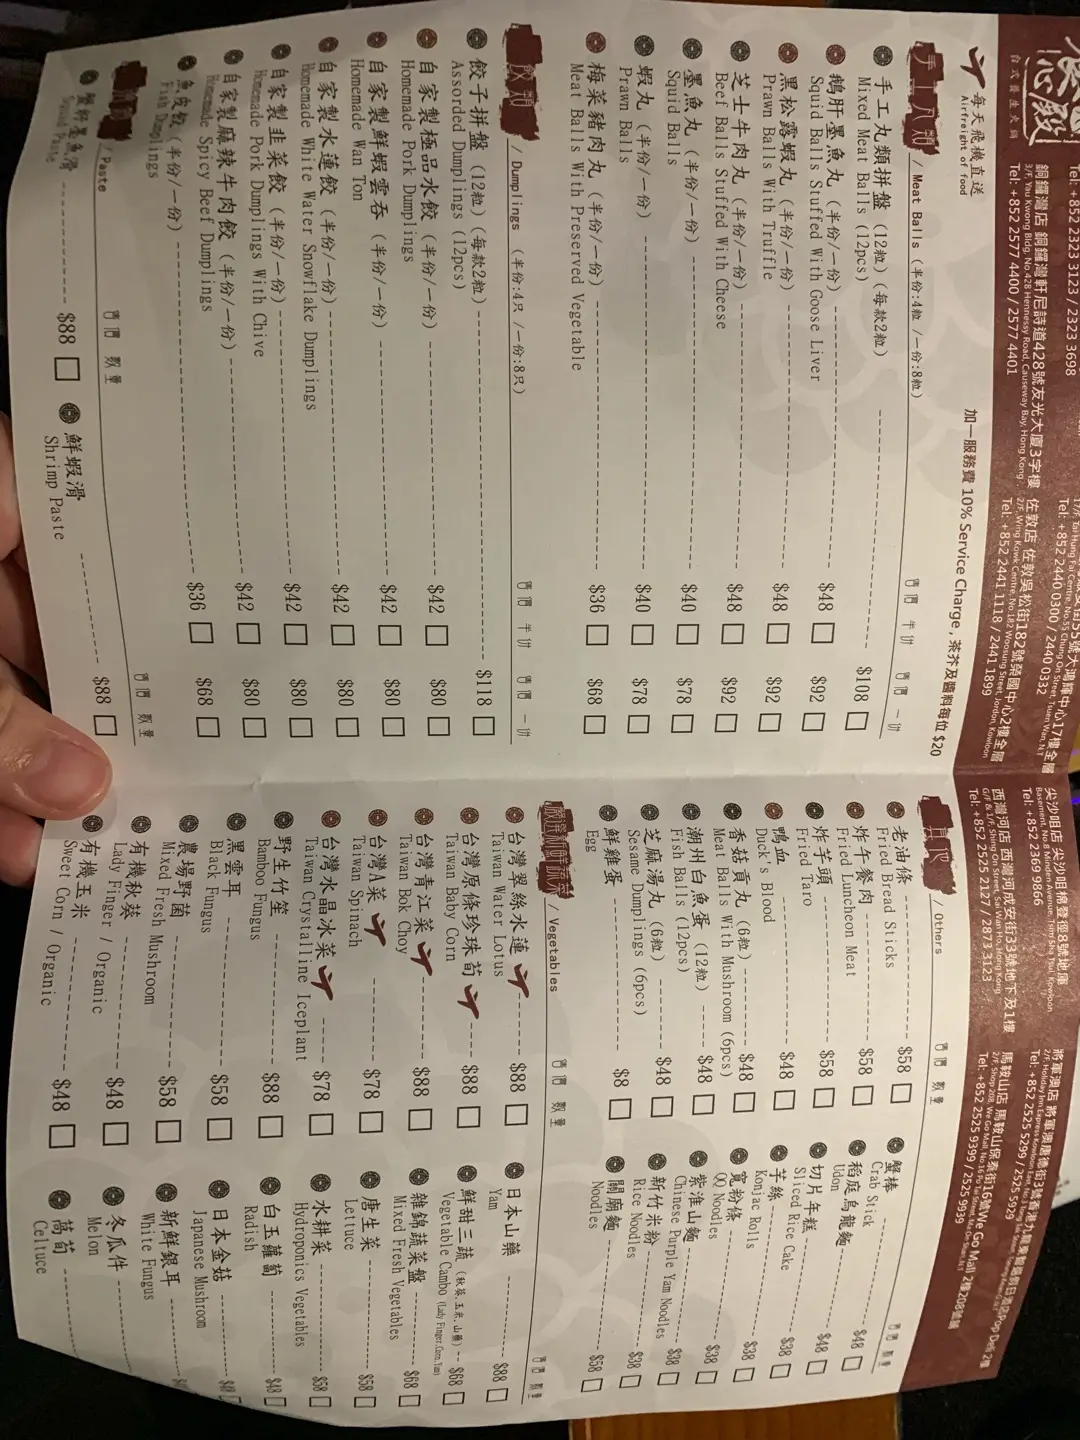 台式養生火鍋
Tel: +852 2323 3123 / 2323 3698
銅鑼灣店 銅鑼灣軒尼詩道428號友光大廈3字樓
3/F, Yau Kwong Bldg, No.428 Hennessy Road, Causeway Bay, Hong Kong
Tel: +852 2577 4400 / 2577 4401
Tel: +852 2440 0300 / 2440 0332
佐敦店 佐敦吳松街182號榮國中心2樓全層
2/F, Wing Kowk Centre, No.182 Woosung Street, Jordon, Kowloon
Tel: +852 2441 1118 / 2441 1899
尖沙咀店 尖沙咀棉登徑8號地庫
Basement, No.8 Minden Avenue, Tsim Sha Tsui, Kowloon
Tel: +852 2369 9866
西灣河店 西灣河成安街33號地下及1樓
Tel: +852 2525 2127 / 2873 3123
Tel: +852 2525 5299 / 2525 5959
馬鞍山店 馬鞍山保泰街16號We Go Mall 2樓208號舖
Tel: +852 2525 9399 / 2525 9599
每天飛機直送
Airfreight of food
加一服務費 10% Service Charge , 茶芥及醬料每位 $20
手工丸類 / Meat Balls (半份:4粒 /一份:8粒)
售價 半份 售價 一份
手工丸類拼盤 (12粒)(每款2粒) $108
Mixed Meat Balls (12pcs)
鵝肝墨魚丸 (半份/一份) $48 $92
Squid Balls Stuffed With Goose Liver
黑松露蝦丸 (半份/一份) $48 $92
Prawn Balls With Truffle
芝士牛肉丸 (半份/一份) $48 $92
Beef Balls Stuffed With Cheese
墨魚丸 (半份/一份) $40 $78
Squid Balls
蝦丸 (半份/一份) $40 $78
Prawn Balls
梅菜豬肉丸 (半份/一份) $36 $68
Meat Balls With Preserved Vegetable
餃類 / Dumplings (半份:4只 /一份:8只)
售價 半份 售價 一份
餃子拼盤 (12粒)(每款2粒) $118
Assorted Dumplings (12pcs)
自家製極品水餃 (半份/一份) $42 $80
Homemade Pork Dumplings
自家製鮮蝦雲吞 (半份/一份) $42 $80
Homemade Wan Ton
自家製水蓮餃 (半份/一份) $42 $80
Homemade White Water Snowflake Dumplings
自家製韭菜餃 (半份/一份) $42 $80
Homemade Pork Dumplings With Chive
自家製麻辣牛肉餃 (半份/一份) $42 $80
Homemade Spicy Beef Dumplings
魚皮餃 (半份/一份) $36 $68
Fish Dumplings
/ Paste
售價 數量 售價 數量
蟹籽墨魚滑 $88
Squid Paste
鮮蝦滑 $88
Shrimp Paste
其他 / Others
售價 數量 售價 數量
老油條 $58
Fried Bread Sticks
炸午餐肉 $58
Fried Luncheon Meat
炸芋頭 $58
Fried Taro
鴨血 $48
Duck's Blood
香菇貢丸 (6粒) $48
Meat Balls With Mushroom (6pcs)
潮州白魚蛋 (12粒) $48
Fish Balls (12pcs)
芝麻湯丸 (6粒) $48
Sesame Dumplings (6pcs)
鮮雞蛋 $8
Egg
蟹棒 $48
Crab Stick
稻庭烏龍麵 $48
Udon
切片年糕 $48
Sliced Rice Cake
芋絲 $38
Konjac Rolls
寬粉條 $38
QQ Noodles
紫淮山麵 $38
Chinese Purple Yam Noodles
新竹米粉 $38
Rice Noodles
關廟麵 $58
Noodles
嚴選新鮮蔬菜 / Vegetables
售價 數量 售價 數量
台灣翠絲水蓮 $88
Taiwan Water Lotus
台灣原條珍珠荀 $88
Taiwan Baby Corn
台灣青江菜 $88
Taiwan Bok Choy
台灣A菜 $78
Taiwan Spinach
台灣水晶冰菜 $78
Taiwan Crystalline Iceplant
野生竹笙 $88
Bamboo Fungus
黑雲耳 $58
Black Fungus
農場野菌 $58
Mixed Fresh Mushroom
有機秋葵 $48
Lady Finger / Organic
有機玉米 $48
Sweet Corn / Organic
日本山藥 $88
Yam
鮮甜三蔬 (秋葵,玉米,山藥) $68
Vegetable Cambo (Lady Finger,Corn,Yam)
雜錦蔬菜盤 $68
Mixed Fresh Vegetables
唐生菜 $58
Lettuce
水耕菜 $58
Hydroponics Vegetables
白玉蘿蔔 $48
Radish
日本金菇 $48
Japanese Mushroom
新鮮銀耳
White Fungus
冬瓜件
Melon
萵荀
Celtuce